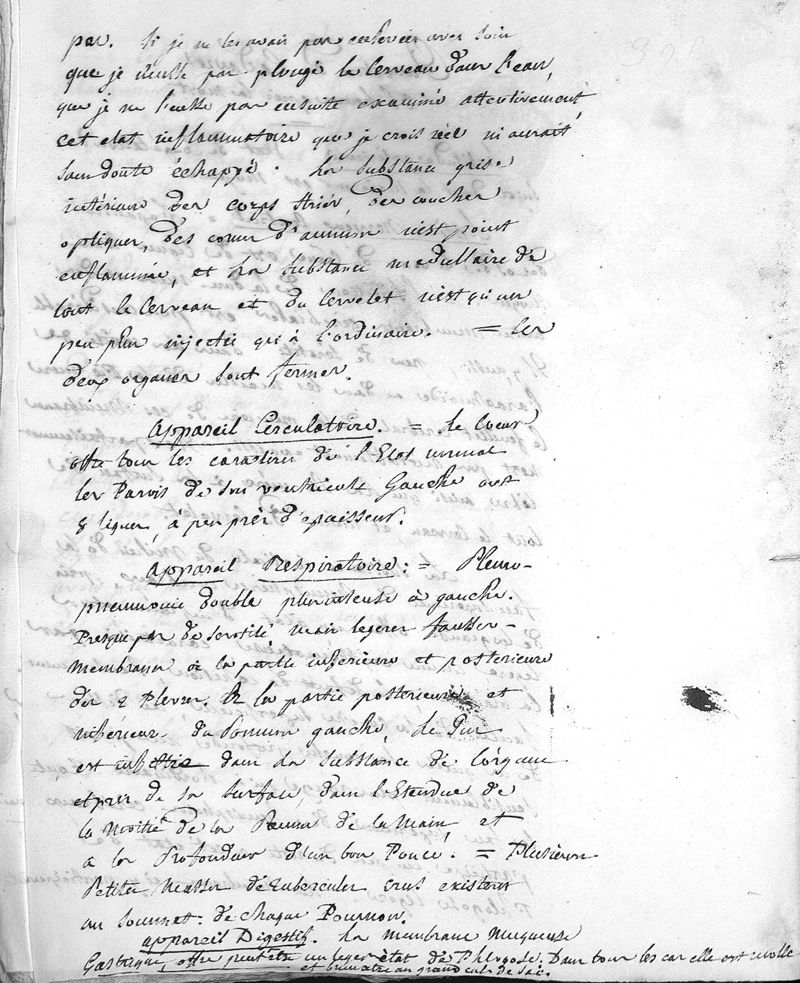 pas. Si je ne les avais pas enlevées avec soin
que je n'eusse pas plongé le Cerveau dans l'eau,
que je ne l'eusse pas ensuite examiné attentivement,
cet etat inflammatoire que je crois réel m'aurait
sans doute échappé. La Substance grise
intérieure des corps Striés, des couches
optiques, des cornes d'ammon n'est point
enflammée, et la Substance medullaire de
tout le Cerveau et du Cervelet n'est qu'un
peu plus injectée qu'à l'ordinaire. = Les
deux organes sont fermes.
Appareil Circulatoire. = Le Coeur
offre tous les caractères de l'Etat normal
les Parois de son ventricule Gauche ont
8 lignes, à peu près d'epaisseur.
Appareil Respiratoire: = Pleuro-
pneumonie double plus intense à gauche.
Presque pas de serosité, mais legeres fausses-
Membranes à la partie inférieure et posterieure
des 2 Plevres. A la partie posterieure et
inférieure du Poumon gauche, Le Pus
est infiltré dans la Substance de l'organe
et près de sa Surface, dans l'Etendue de
la Moitié de la Paume de la Main, et
à la Profondeur d'un bon Pouce. = Plusieurs
Petites Masses de tubercules crus existent
au Sommet de chaque Poumon.
appareil Digestif. La membrane Muqueuse
Gastrique, offre peut etre un leger état de Phlogose. Dans tous les cas elle est molle
et brunatre au grand cul de Sac.